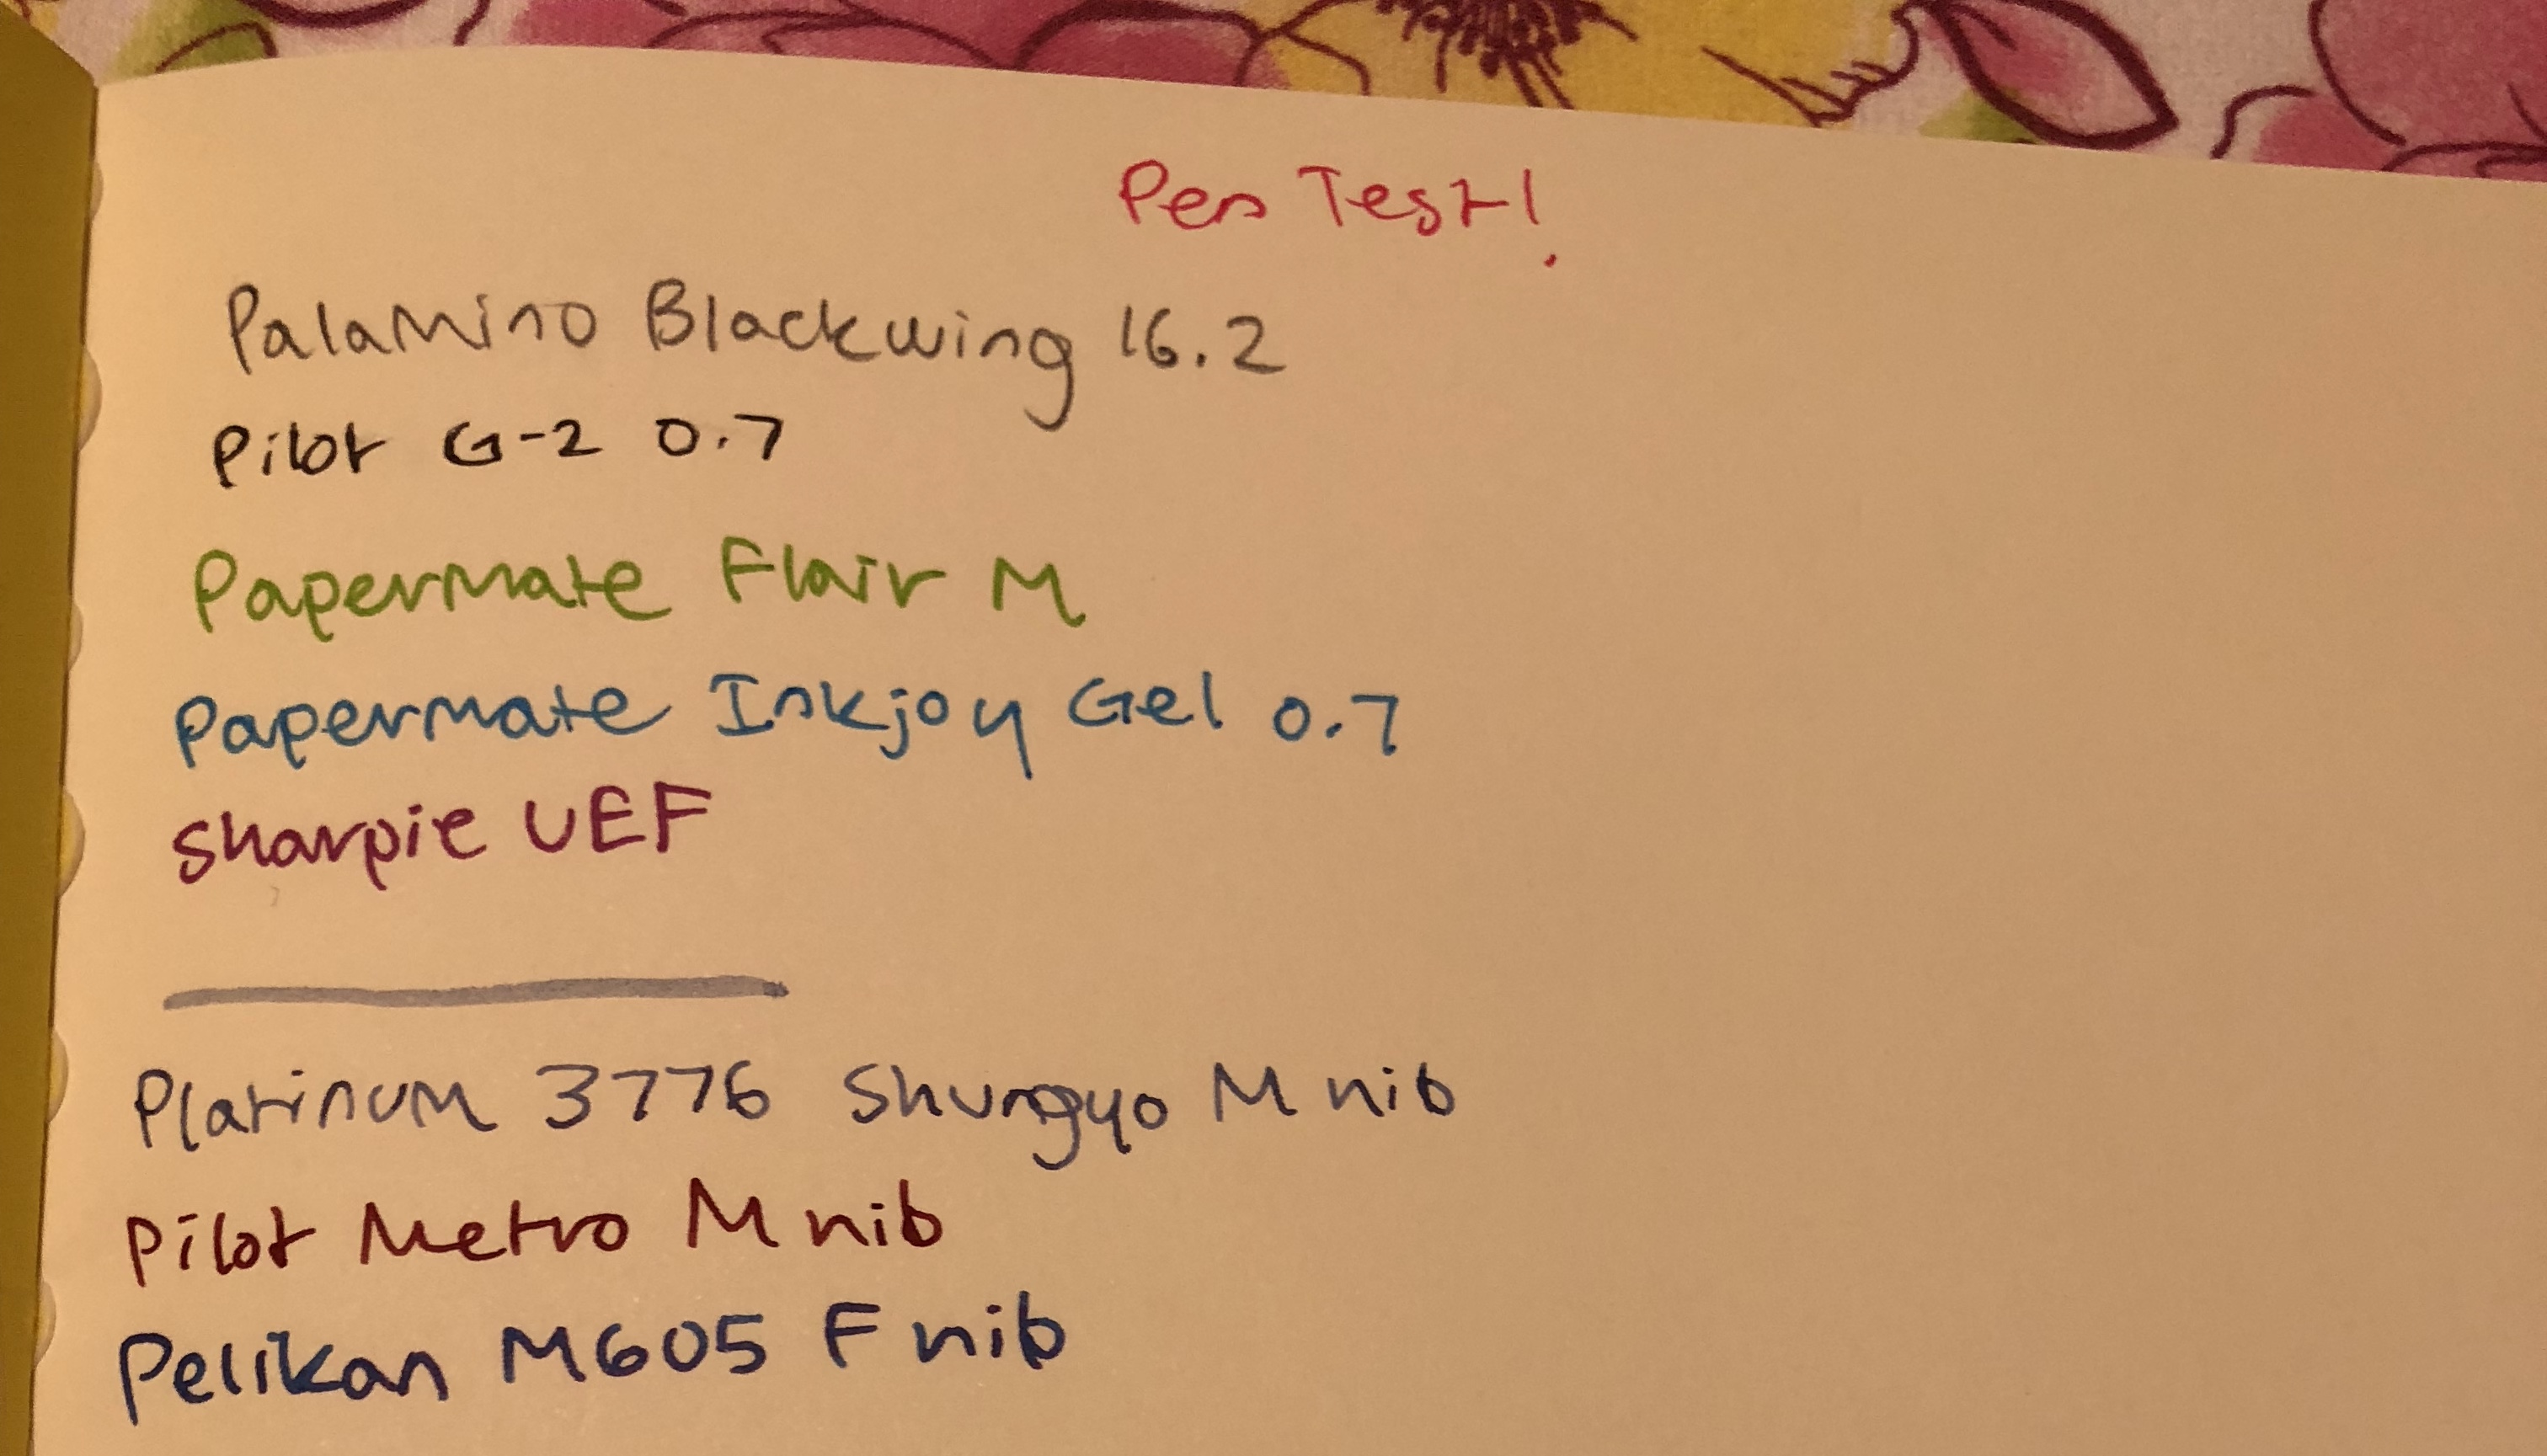 Pen Test!
Palamino Blackwing 16.2
Pilot G-2 0.7
Papermate Flair M
Papermate Inkjoy Gel 0.7
Sharpie UEF
Platinum 3776 Shungyo M nib
Pilot Metro M nib
Pelikan M605 F nib